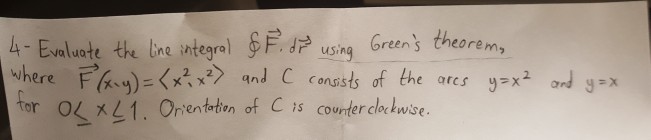 4- Evaluate the line integral ∮F⃗.dr⃗ using Green's theorem,
where F⃗(x,y)=<x²,x²> and C consists of the arcs y=x² and y=x
for 0≤x≤1. Orientation of C is counterclockwise.